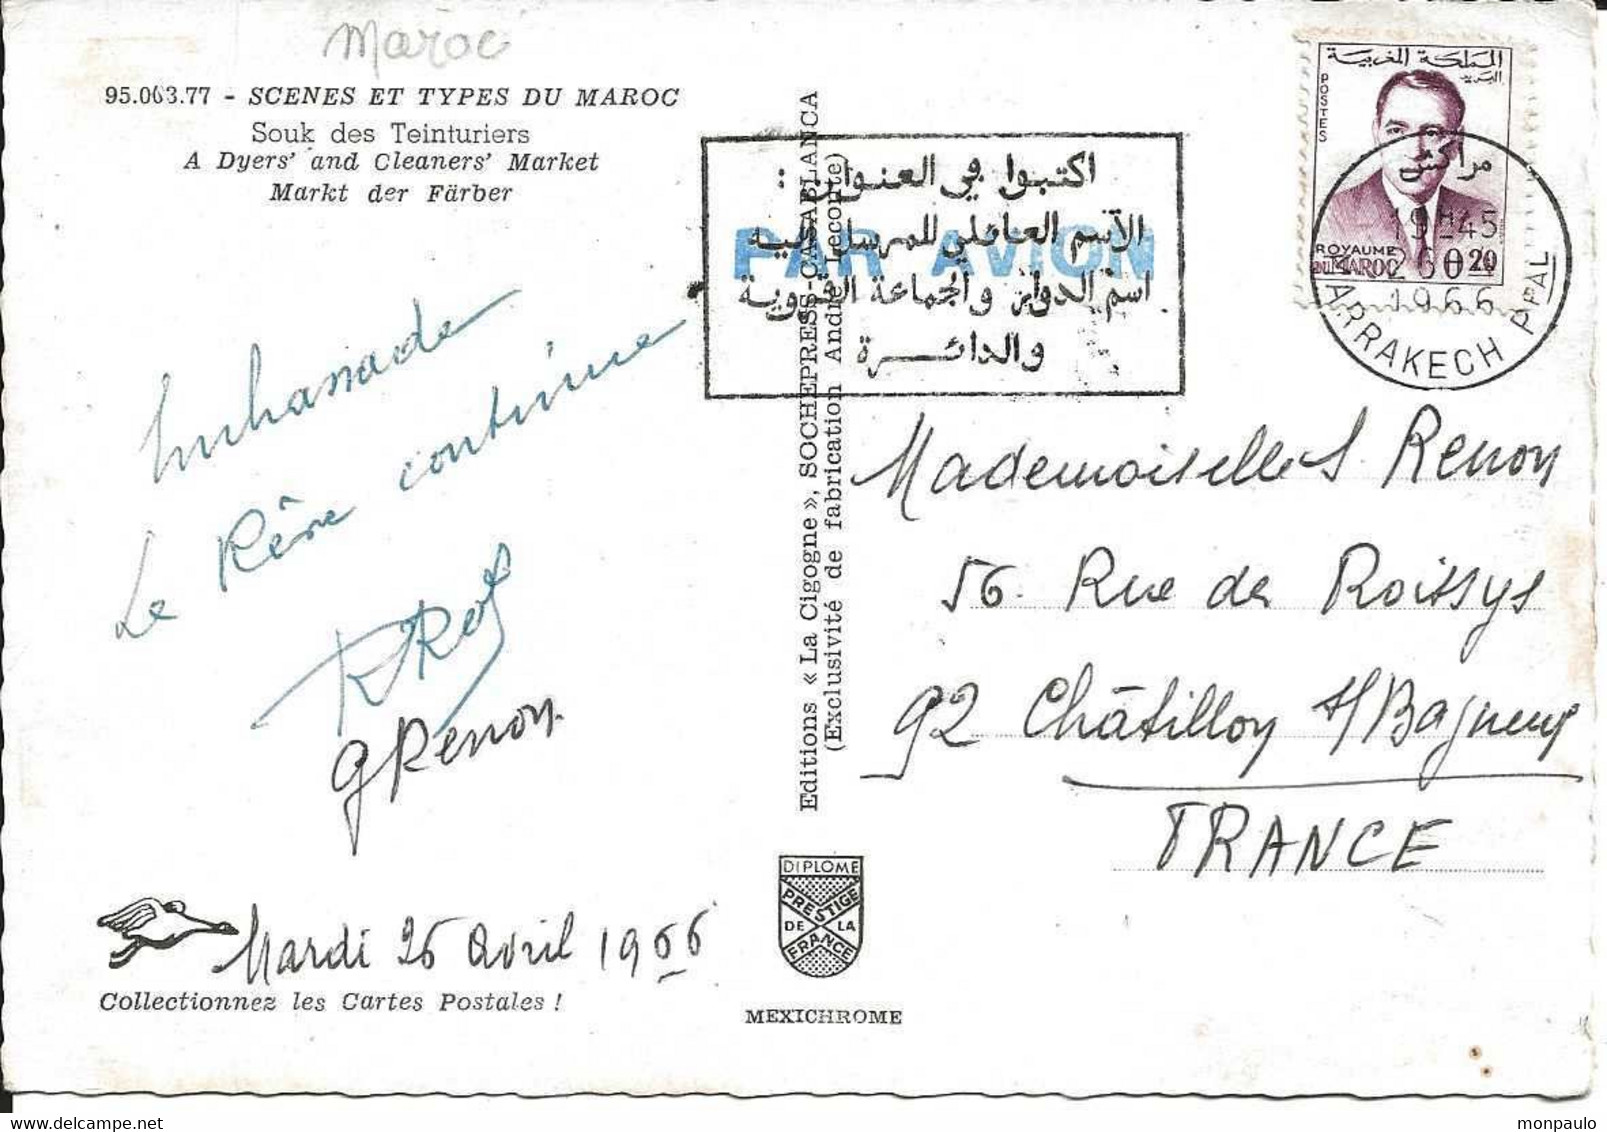 Maroc
95.063.77 - SCENES ET TYPES DU MAROC
Souk des Teinturiers
A Dyers' and Cleaners' Market
Markt der Färber
Le Rêve continue
GRenon
Mardi 26 Avril 1966
Collectionnez les Cartes Postales !
Editions « La Cigogne », SOCHEPRESS-CASABLANCA
(Exclusivité de fabrication André Leconte)
DIPLOME
PRESTIGE
DE LA
FRANCE
MEXICHROME
اكتبوا في العنوان :
الاسم العائلي للمرسل إليه
اسم الدوار والجماعة القروية
والدائرة
PAR AVION
المملكة المغربية
البريد
POSTES
ROYAUME
DU MAROC
0.20
مراكش
19H45
26
1966
MARRAKECH PPAL
Mademoiselle S Renon
56 Rue de Roissys
92 Châtillon s/Bagneux
FRANCE
monpaulo